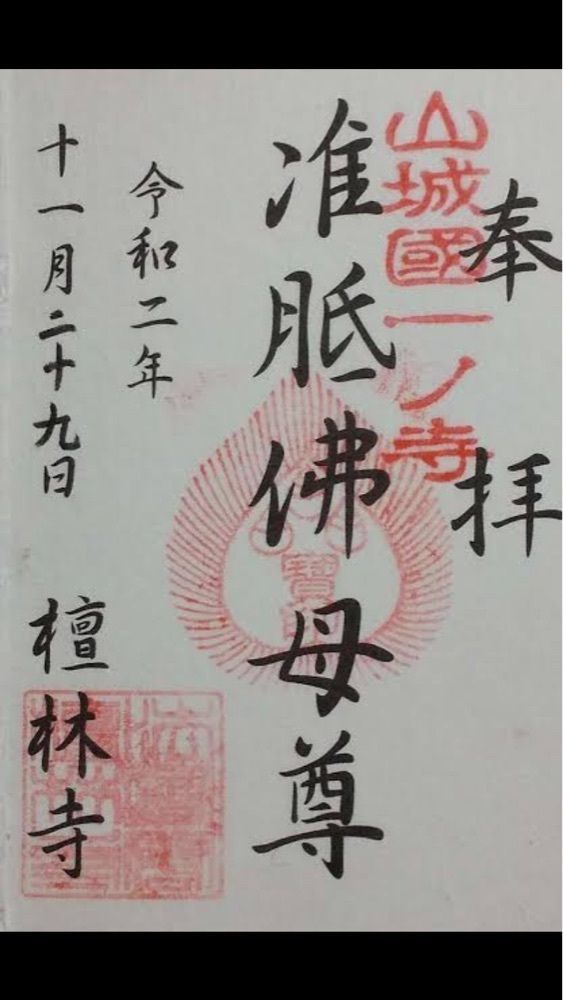 奉拝
山城國一ノ寺
准胝佛母尊
寶
令和二年
十一月二十九日
檀林寺